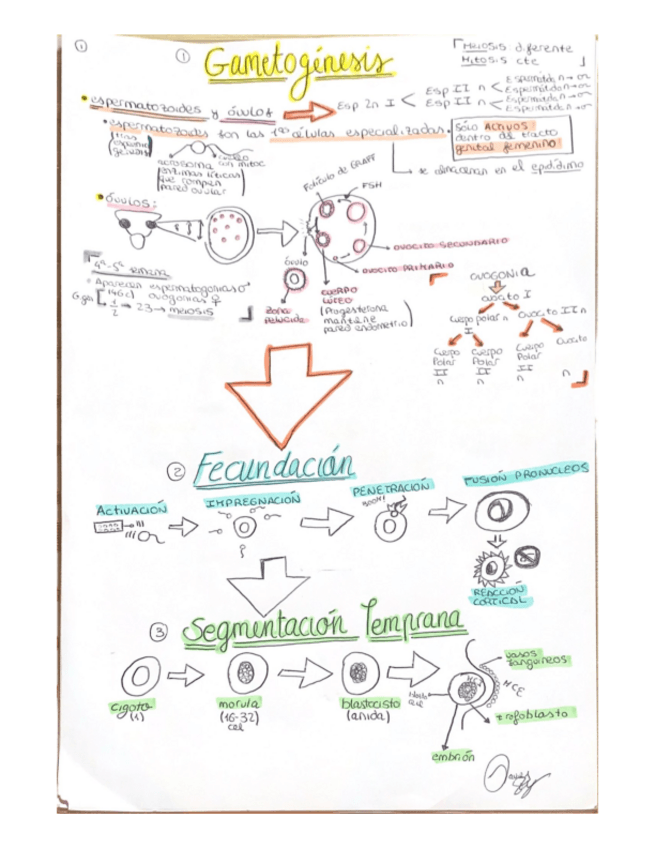 ①
① Gametogénesis
Meiosis diferente
Mitosis cte
• espermatozoides y óvulos
Esp 2n I < Esp II n < Espermátida n →
Espermátida n →
Esp II n < Espermátida n →
Espermátida n →
• espermatozoides son las 1ªs células especializadas.
Sólo ACTIVOS
dentro del tracto
genital femenino
→ se almacenan en el epidídimo
acrosoma
enzimas líticas
que rompen
pared ovular
cuello
con mitoc
• óvulos:
Folículo de GRAFF
FSH
OVOCITO SECUNDARIO
OVOCITO PRIMARIO
óvulo
ZONA
PELÚCIDA
CUERPO
LÚTEO
(Progesterona
mantiene
pared endometrio)
4ª-5ª semana
• Aparecen espermatogonias ♂
ovogonias ♀
46C
1/2 → 23 → meiosis
OVOGONIA
ovocito I
Cuerpo polar n
I
Ovocito II n
Cuerpo
Polar
II
n
Cuerpo
Polar
II
n
Cuerpo
Polar
II
n
Ovocito
n
② Fecundación
ACTIVACIÓN
IMPREGNACIÓN
PENETRACIÓN
BOOM!
FUSIÓN PRONUCLEOS
REACCIÓN
CORTICAL
③ Segmentación Temprana
cigoto
(1)
morula
(16-32)
cel
blastocisto
(anida)
vasos
sanguíneos
HCE
trofoblasto
embrión